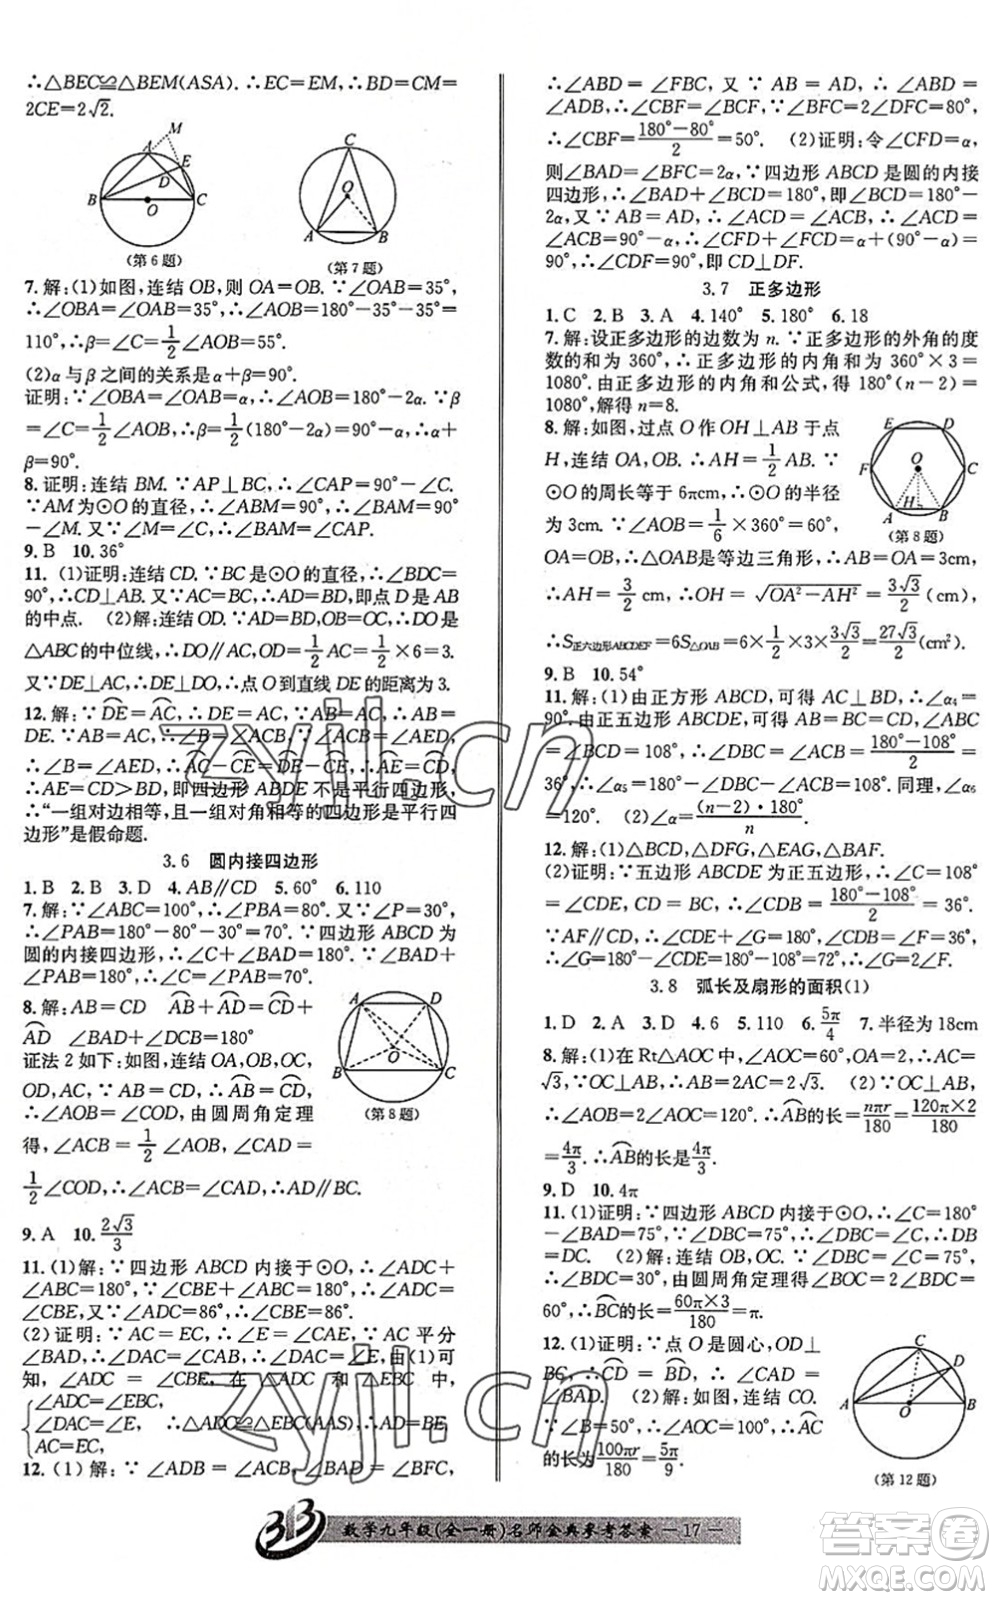 ∴△BEC≌△BEM(ASA). ∴EC=EM,∴BD=CM=
2CE=2√2.
M
A
E
D
B
O
C
(第6题)
C
O
A
B
(第7题)
7. 解:(1)如图,连结OB,则OA=OB.∵∠OAB=35°,
∴∠OBA=∠OAB=35°,∴∠AOB=180°-35°-35°=
110°,∴β=∠C=1/2∠AOB=55°.
(2)α与β之间的关系是α+β=90°.
证明:∵∠OBA=∠OAB=α,∴∠AOB=180°-2α.∵β
=∠C=1/2∠AOB,∴β=1/2(180°-2α)=90°-α,∴α+
β=90°.
8. 证明:连结BM.∵AP⊥BC,∴∠CAP=90°-∠C.
∵AM为⊙O的直径,∴∠ABM=90°,∴∠BAM=90°-
∠M.又∵∠M=∠C,∴∠BAM=∠CAP.
9. B 10. 36°
11. (1)证明:连结CD.∵BC是⊙O的直径,∴∠BDC=
90°,∴CD⊥AB.又∵AC=BC,∴AD=BD,即点D是AB
的中点. (2)解:连结OD.∵AD=BD,OB=OC,∴DO是
△ABC的中位线,∴DO∥AC,OD=1/2AC=1/2×6=3.
又∵DE⊥AC,∴DE⊥DO,∴点O到直线DE的距离为3.
12. 解:∵DE⌒=AC⌒,∴DE=AC.∵AB=AC,∴AB=
DE.∵AB=AC,∴∠B=∠ACB.∵∠ACB=∠AED,
∴∠B=∠AED,∴AC⌒-CE⌒=DE⌒-CE⌒,∴AE⌒=CD⌒,
∴AE=CD>BD,即四边形ABDE不是平行四边形,
∴“一组对边相等,且一组对角相等的四边形是平行四
边形”是假命题.
3.6 圆内接四边形
1. B 2. B 3. D 4. AB∥CD 5. 60° 6. 110
7. 解:∵∠ABC=100°,∴∠PBA=80°.又∵∠P=30°,
∴∠PAB=180°-80°-30°=70°.∵四边形ABCD为
圆的内接四边形,∴∠BAD+∠C=180°.又∵∠BAD+
∠PAB=180°,∴∠C=∠PAB=70°.
8. 解:AB=CD AB⌒+AD⌒=CD⌒+
AD⌒ ∠BAD+∠BCD=180°
证法2如下:如图,连结OA,OB,OC,
OD,AC,∵AB=CD,∴AB⌒=CD⌒,
∴∠AOB=∠COD,由圆周角定理
得,∠ACB=1/2∠AOB,∠CAD=
1/2∠COD,∴∠ACB=∠CAD,∴AD∥BC.
A
D
O
B
C
(第8题)
9. A 10. 2√3/3
11. (1)解:∵四边形ABCD内接于⊙O,∴∠ADC+
∠ABC=180°,∵∠CBE+∠ABC=180°,∴∠ADC=
∠CBE,又∵∠ADC=86°,∴∠CBE=∠ADC=86°.
(2)证明:∵AC=EC,∴∠E=∠CAE,∵AC平分
∠BAD,∴∠DAC=∠CAE,∴∠DAC=∠E,由(1)可
知,∠ADC=∠EBC,在△ADC和△EBC中,
{∠ADC=∠EBC,
∠DAC=∠E, ∴△ADC≌△EBC(AAS),∴AD=BE.
AC=EC,
12. (1)解:∵∠ADB=∠ACB,∠BAD=∠BFC,
∴∠ABD=∠FBC,又∵AB=AD,∴∠ABD=
∠ADB,∴∠CBF=∠BCF,∵∠BFC=2∠DFC=80°,
∴∠CBF=(180°-80°)/2=50°. (2)证明:令∠CFD=α,
则∠BAD=∠BFC=2α,∵四边形ABCD是圆的内接
四边形,∴∠BAD+∠BCD=180°,即∠BCD=180°-
2α,又∵AB=AD,∴∠ACD=∠ACB,∴∠ACD=
∠ACB=90°-α,∴∠CFD+∠FCD=α+(90°-α)
=90°,∴∠CDF=90°,即CD⊥DF.
3.7 正多边形
1. C 2. B 3. A 4. 140° 5. 180° 6. 18
7. 解:设正多边形的边数为n.∵正多边形的外角的度
数的和为360°,∴正多边形的内角和为360°×3=
1080°.由正多边形的内角和公式,得180°(n-2)=
1080°,解得n=8.
8. 解:如图,过点O作OH⊥AB于点
H,连结OA,OB,则AH=1/2AB.∵
⊙O的周长等于6πcm,∴⊙O的半径
为3cm.∵∠AOB=1/6×360°=60°,
OA=OB,∴△OAB是等边三角形,∴AB=OA=3cm,
∴AH=3/2cm,∴OH=√(OA²-AH²)=3√3/2(cm),
∴S正六边形ABCDEF=6S△OAB=6×1/2×3×3√3/2=27√3/2(cm²).
E
D
F
O
C
A
H
B
(第8题)
9. B 10. 54°
11. 解:(1)由正方形ABCD,可得AC⊥BD,∴∠α₄=
90°.由正五边形ABCDE,可得AB=BC=CD,∠ABC
=∠BCD=108°,∴∠DBC=∠ACB=(180°-108°)/2=
36°,∴∠α₅=180°-∠DBC-∠ACB=108°.同理,∠α₆
=120°. (2)∠α=(n-2)·180°/n
12. 解:(1)△BCD,△DFG,△EAG,△BAF.
(2)证明:∵五边形ABCDE为正五边形,∴∠BCD=
∠CDE=108°,CD=BC,∴∠BDC=(180°-108°)/2=36°.
∵AF∥CD,∴∠CDE+∠G=180°,∠BDC=∠F=36°,
∴∠G=180°-∠CDE=180°-108°=72°,∴∠G=2∠F.
3.8 弧长及扇形的面积(1)
1. D 2. A 3. D 4. 6 5. 110 6. 5π/4 7. 半径为18cm
8. 解:(1)在Rt△AOC中,∠AOC=60°,OA=2,∴AC=
√3,∵OC⊥AB,∴AB=2AC=2√3. (2)∵OC⊥AB,
∴∠AOB=2∠AOC=120°.∴AB⌒的长=nπr/180=120π×2/180
=4π/3.∴AB⌒的长是4π/3.
9. D 10. 4π
11. (1)证明:∵四边形ABCD内接于⊙O,∴∠C=180°
-∠BAD=75°,∵∠DBC=75°,∴∠DBC=∠C,∴DB
=DC. (2)解:连结OB,OC.∵∠DBC=∠C=75°,
∴∠BDC=30°,由圆周角定理得∠BOC=2∠BDC=
60°,∴BC⌒的长=60π×3/180=π.
12. (1)证明:∵点O是圆心,OD⊥
BC,∴CD⌒=BD⌒,∴∠CAD=
∠BAD. (2)解:如图,连结CO.
∵∠B=50°,∴∠AOC=100°,∴AC⌒
的长为100πr/180=5π/9.
C
D
A
O
B
(第12题)
zyjl.cn
zyjl.cn
3B
数学九年级(全一册)名师金典参考答案 —17—
答案圈
MXQE.COM